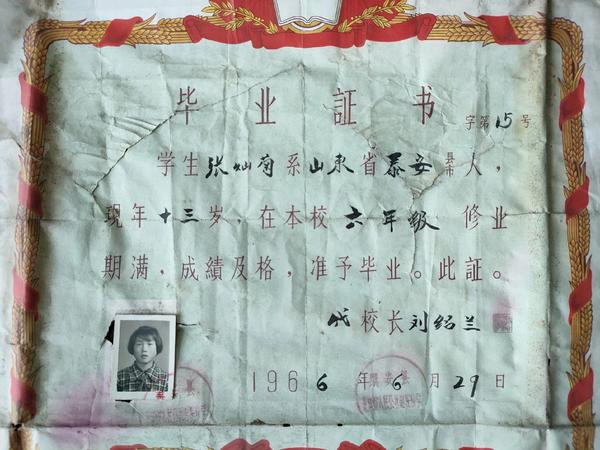 毕业証书
字第15号
学生张灿菊系山东省泰安县市人，
现年十三岁，在本校六年級修业
期满，成績及格，准予毕业。此証。
代校长刘绍兰
1966年6月29日
泰安县
泰安县